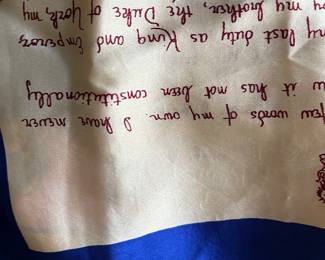 few words of my own. I have never
it has not been constitutionally
my last duty as King and Emperor,
my brother, the Duke of York, my